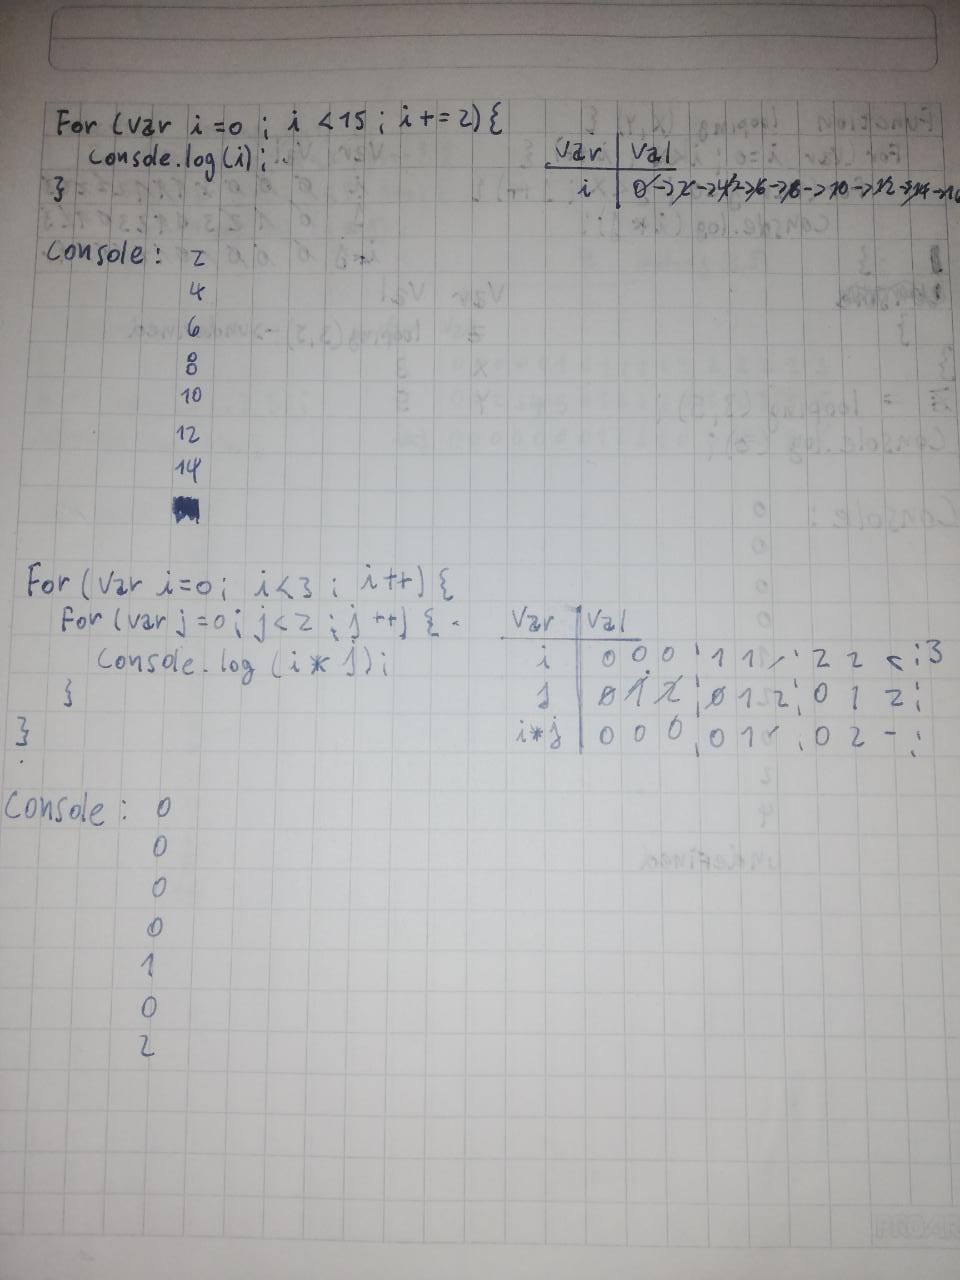 For (var i=0 ; i <15 ; i += 2) {
Console.log(i);
}
Var Val
i 0->2->4->6->8->10->12->14->16
Console: 2
4
6
8
10
12
14
For (var i=0; i<3 ; i++) {
For (var j=0; j<2 ; j++) {
Console.log (i* j);
}
}
Var Val
i 0 0 0 1 1 2 2 3
j 0 1 2 0 1 2 0 1 2
i*j 0 0 0 0 1 0 2 -
Console: 0
0
0
0
1
0
2